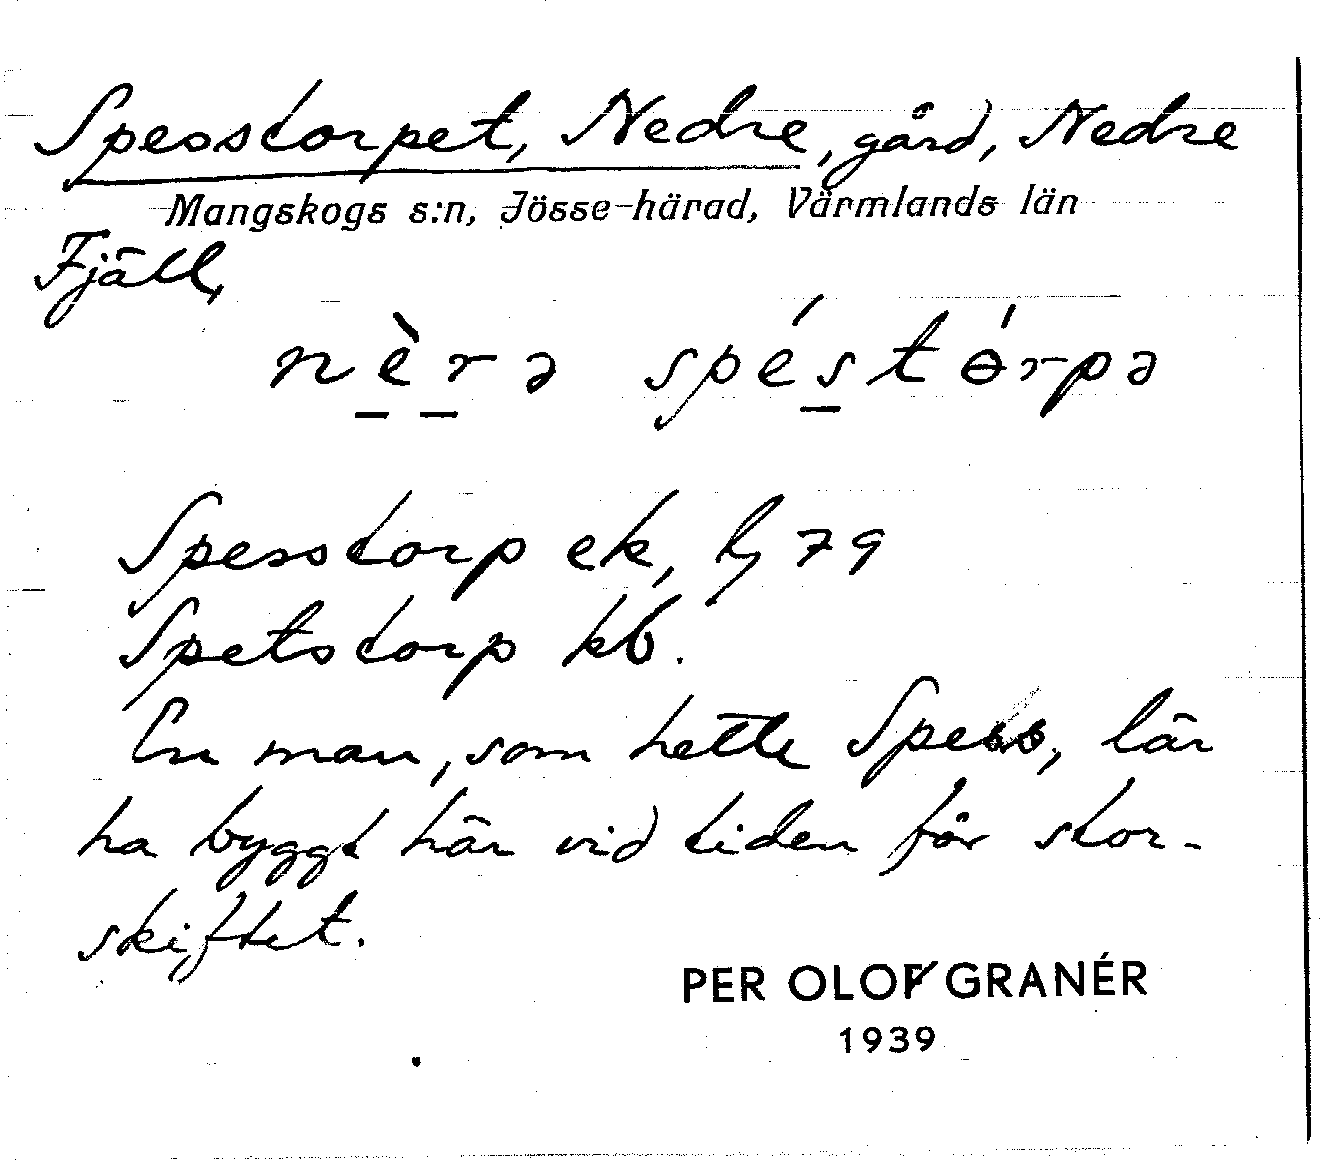 Spesstorpet, Nedre, gård, Nedre
Mangskogs s:n, Jösse-härad, Värmlands län
Fjäll,
nèrə spéstɵ́rpə
Spesstorp ek, lj 79
Spetstorp kb.
En man, som hette Spess, lär
ha byggt här vid tiden för stor-
skiftet.
PER OLOF GRANÉR
1939